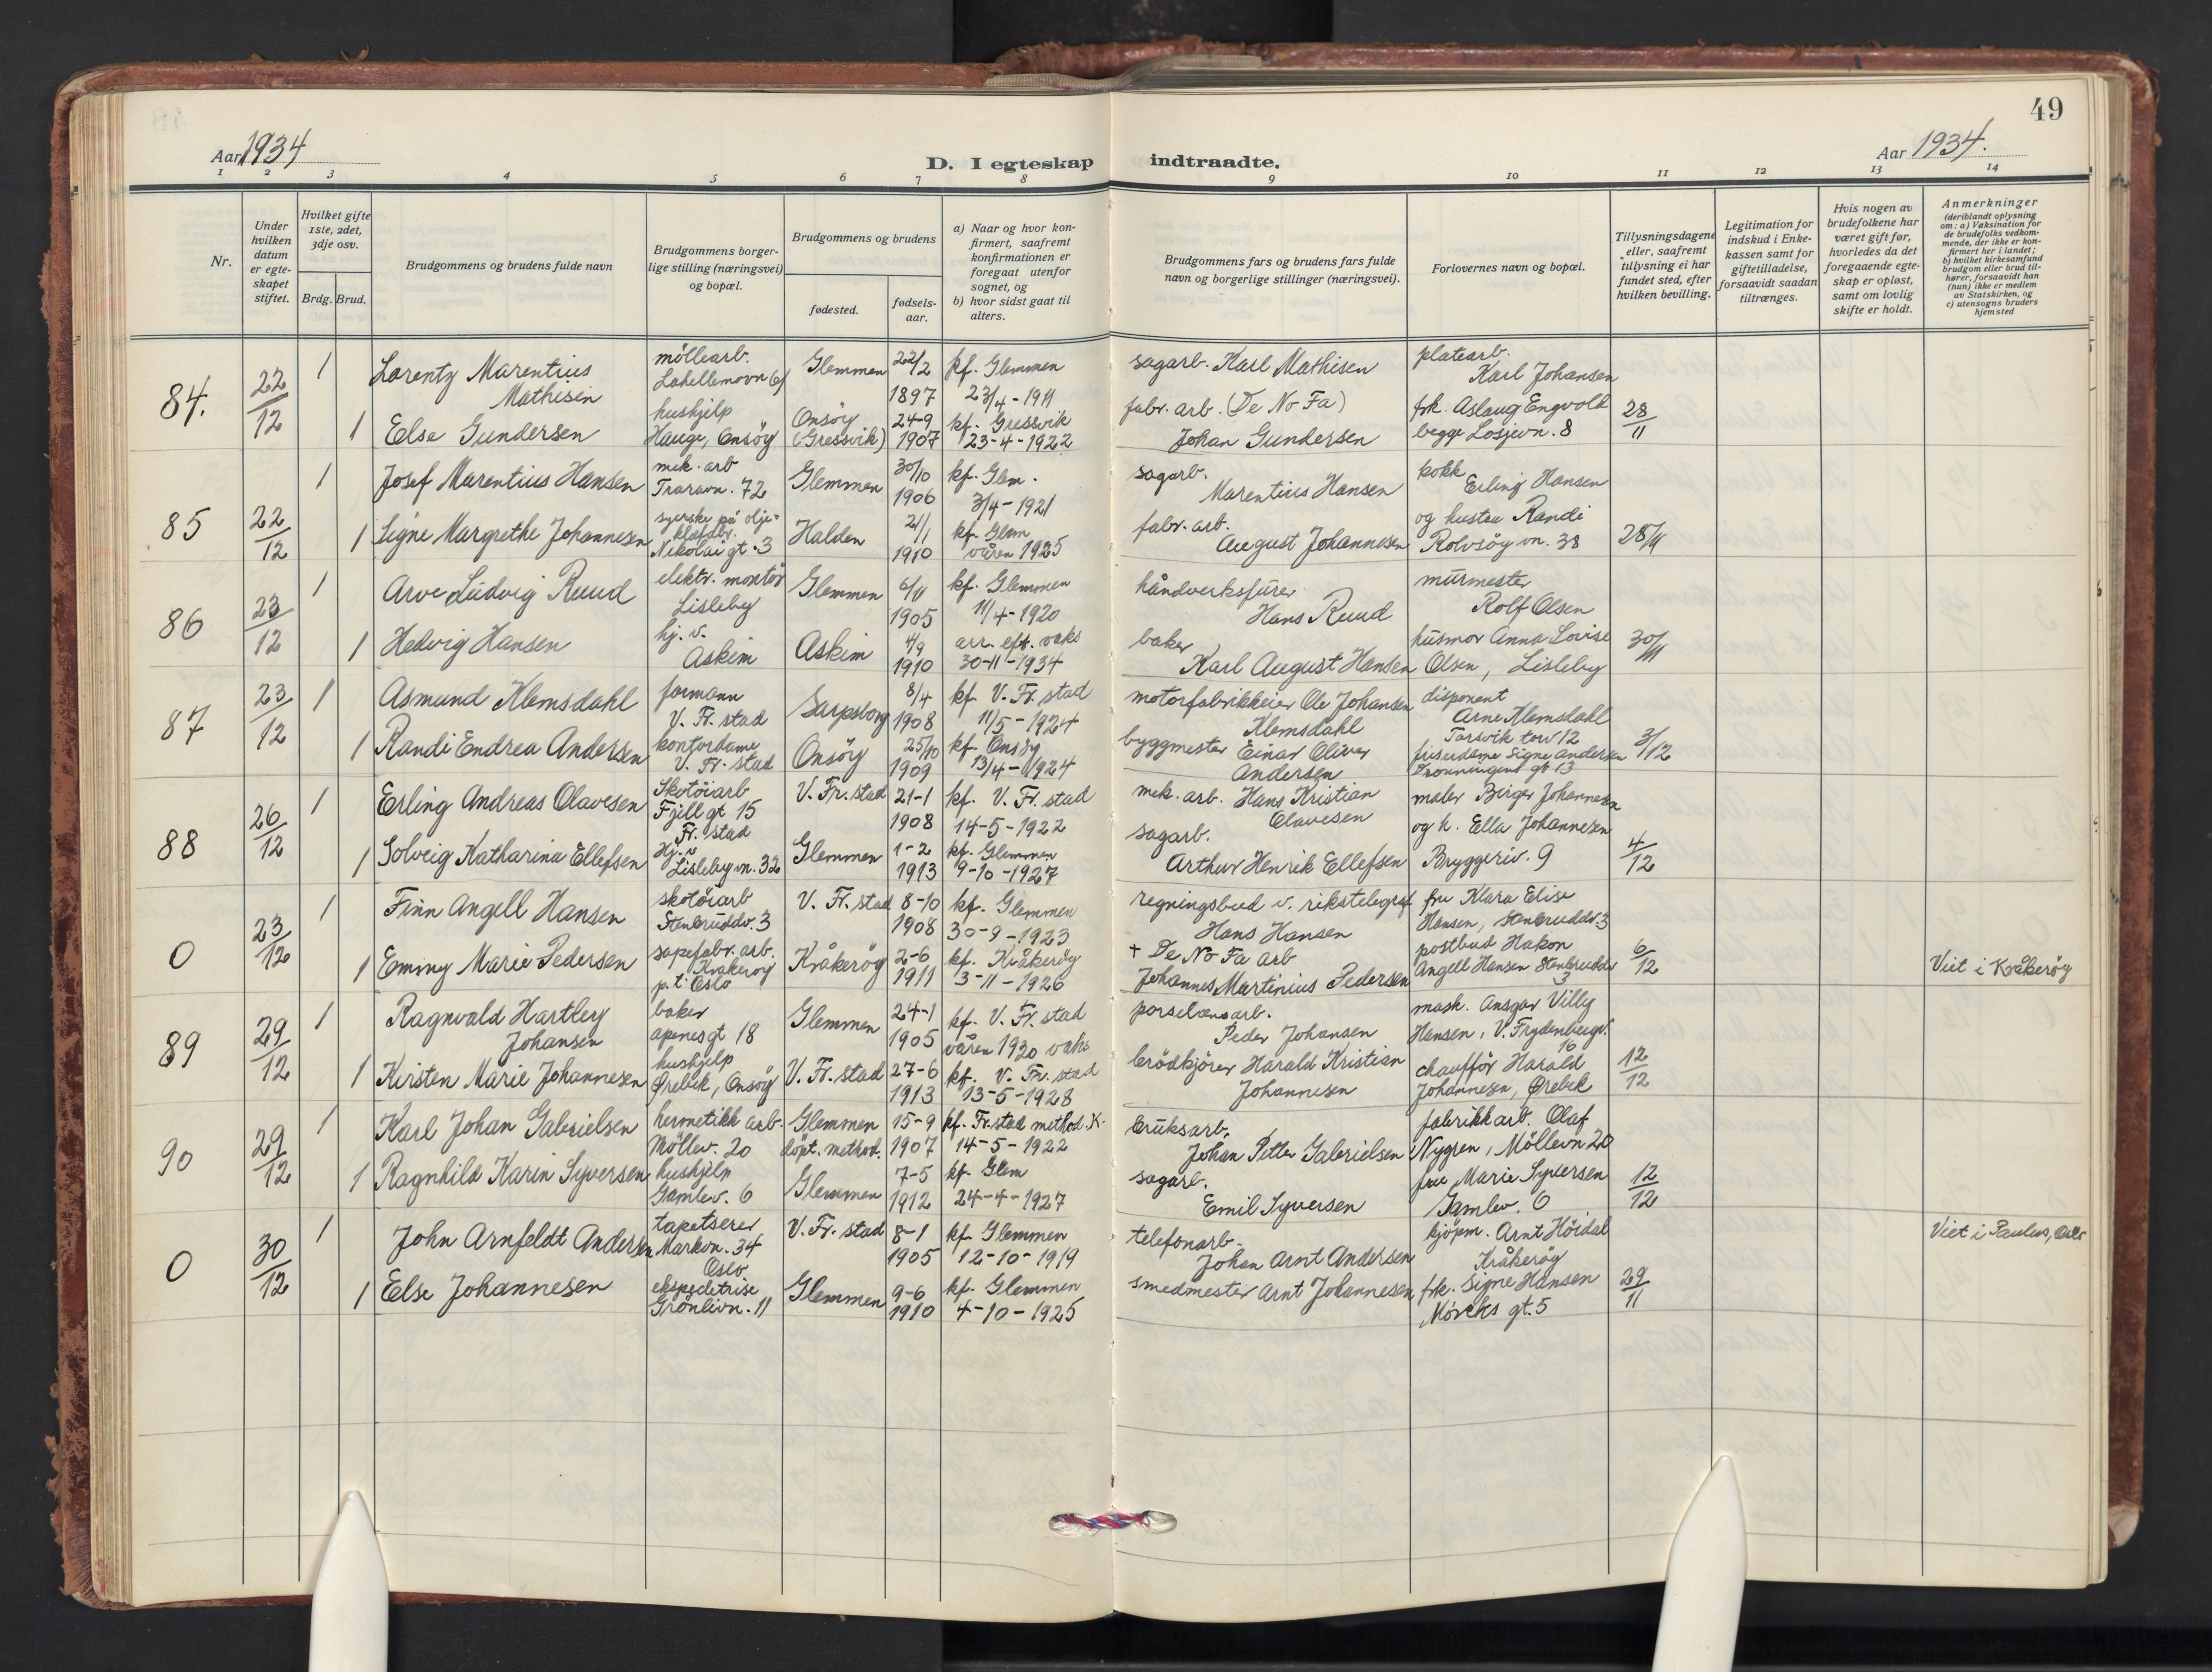 49
Aar 1934
D. I egteskap indtraadte.
Aar 1934.
1 2 3 4 5 6 7 8 9 10 11 12 13 14
Nr.
Under hvilken datum er egteskapet stiftet.
Hvilket gifte 1ste, 2det, 3dje osv.
Brdg. Brud.
Brudgommens og brudens fulde navn
Brudgommens borgerlige stilling (næringsvei) og bopæl.
Brudgommens og brudens
fødested.
fødselsaar.
a) Naar og hvor konfirmert, saafremt konfirmationen er foregaat utenfor sognet, og
b) hvor sidst gaat til alters.
Brudgommens fars og brudens fars fulde navn og borgerlige stillinger (næringsvei).
Forlovernes navn og bopæl.
Tillysningsdagene eller, saafremt tillysning ei har fundet sted, efter hvilken bevilling.
Legitimation for indskud i Enkekassen samt for giftetilladelse, forsaavidt saadan tiltrænges.
Hvis nogen av brudefolkene har været gift før, hvorledes da det foregaaende egteskap er opløst, samt om lovlig skifte er holdt.
Anmerkninger
(deriblandt oplysning om: a) Vaksination for de brudefolks vedkommende, der ikke er konfirmert her i landet; b) hvilket kirkesamfund brudgom eller brud tilhører, forsaavidt han (hun) ikke er medlem av Statskirken, og c) utensogns bruders hjemsted
84. 22/12 1 Lorentz Marentius Mathisen møllearb. Lahellemovn 61 Glemmen 22/2 1897 kf. Glemmen 23/4-1911 sagarb. Karl Mathisen platearb. Karl Johansen
1 Else Gundersen hushjelp Hauge, Onsøy Onsøy (Gressvik) 24-9 1907 kf. Gressvik 23-4-1922 fabr. arb. (De No Fa) Johan Gundersen frk. Aslaug Engvold begge Losjevn. 8 28/11
85 22/12 1 Josef Marentius Hansen mek. arb Traravn. 72 Glemmen 30/10 1906 kf. Glem. 3/4-1921 sagarb. Marentius Hansen kokk Erling Hansen
1 Signe Margrethe Johannesen syerske på oljeklædfbr. Nikolai gt. 3 Halden 21/1 1910 kf. Glem våren 1925 fabr. arb. August Johannesen og hustru Randi Rolvsøyvn. 38 28/11
86 23/12 1 Arve Ludvig Ruud elektr. montør Lisleby Glemmen 6/11 1905 kf. Glemmen 11/4-1920 håndverksfürer Hans Ruud murmester Rolf Olsen
1 Hedvig Hansen hj. v. Askim Askim 4/9 1910 arr. eft. vaks 30-11-1934 baker Karl August Hansen husmor Anna Lovise Olsen, Lisleby 30/11
87 23/12 1 Asmund Klemsdahl formann V. Fr. stad Sarpsborg 8/4 1908 kf V. Fr. stad 11/5-1924 motorfabrikkeier Ole Johansen Klemsdahl disponent Arne Klemsdahl Torsvik torv 12
1 Randi Endrea Andersen kontordame V. Fr. stad Onsøy 25/10 1909 kf. Onsøy 13/4-1924 byggmester Einar Oliver Andersen friserdame Signe Andersen Dronningens gt 13 3/12
88 26/12 1 Erling Andreas Olavesen Skotøiarb Fjellgt 15 Fr. stad V. Fr. stad 21-1 1908 kf. V. Fr. stad 14-5-1922 mek. arb. Hans Kristian Olavesen maler Birger Johannesen
1 Solveig Katharina Ellefsen Hj. v Lislebyvn. 32 Glemmen 1-2 1913 kf. Glemmen 9-10-1927 sagarb. Arthur Henrik Ellefsen og h. Ella Johannesen Bryggeriv. 9 4/12
0 23/12 1 Finn Angell Hansen skotøiarb Stenbruddv. 3 V. Fr. stad 8-10 1908 kf. Glemmen 30-9-1923 regningsbud v. rikstelegraf Hans Hansen fru Klara Elise Hansen, Stenbruddv. 3
1 Emmy Marie Pedersen sapefabr. arb. Kråkerøy p.t. Oslo Kråkerøy 2-6 1911 kf. Kråkerøy 3-11-1926 + De No Fa arb Johannes Martinius Pedersen postbud Hakon Angell Hansen Stenbruddv 3 6/12 Viet i Kråkerøy
89 29/12 1 Ragnvald Hartley Johansen baker apenesgt 18 Glemmen 24-1 1905 kf. V. Fr. stad våren 1920 vaks porselensarb. Peder Johansen mask. Ansgar Villy Hansen, V. Frydenbergv. 16
1 Kirsten Marie Johannesen hushjelp Ørebek, Onsøy V. Fr. stad 27-6 1913 kf. V. Fr. stad 13-5-1928 brödkjörer Harald Kristian Johannesen chauffør Harald Johannesen, Ørebek 12/12
90 29/12 1 Karl Johan Gabrielsen hermetikk arb. Møllev. 20 Glemmen döpt. method. 15-9 1907 kf. Fr.stad method. K. 14-5-1922 bruksarb. Johan Petter Gabrielsen fabrikkarb. Olaf Nygren, Møllevn 20
1 Ragnhild Karin Syversen hushjelp Gamlev. 6 Glemmen 7-5 1912 kf. Glem 24-4-1927 sagarb. Emil Syversen fru Marie Syversen Gamlev. 6 12/12
0 30/12 1 John Arnfeldt Andersen tapetserer Markvn. 34 Oslo V. Fr. stad 8-1 1905 kf. Glemmen 12-10-1919 telefonarb. Johan Arnt Andersen kjøpm. Arnt Høidal Kråkerøy Viet i Paulus, Oslo
1 Else Johannesen ekspeditrise Grønlivn. 11 Glemmen 9-6 1910 kf. Glemmen 4-10-1925 smedmester Arnt Johannesen frk. Signe Hansen Mørchs gt. 5 29/11